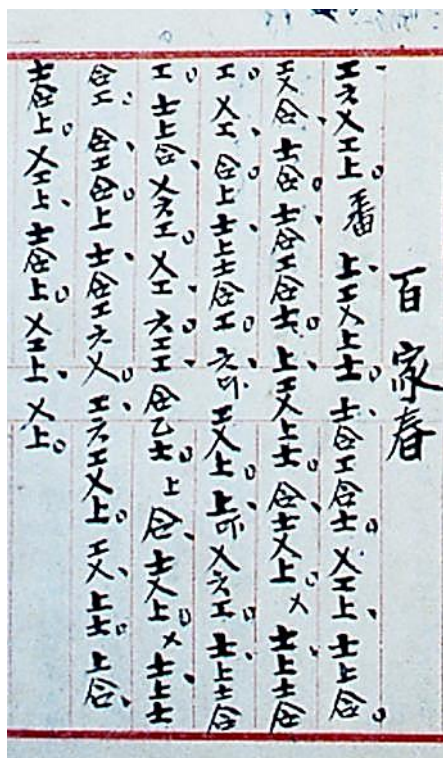 百家春
工六乂工上。上、工乂上士。士、合工合士。乂工上、士上合。
工乂合、士合。士、合工合士。上、工乂上士。合士、乂上。乂士上士、合
工。乂工、合上、士上士合工。六、工乂上。上、乂六工。士上、士合
工。士上合、乂六工。乂工、六工工合乙士。上合、士乂上。乂士上、士
合工。合工、合上、士合工六乂。工、六工乂上。工乂、上士。上合、
士合上。乂工上、士合上。乂工上、乂上。